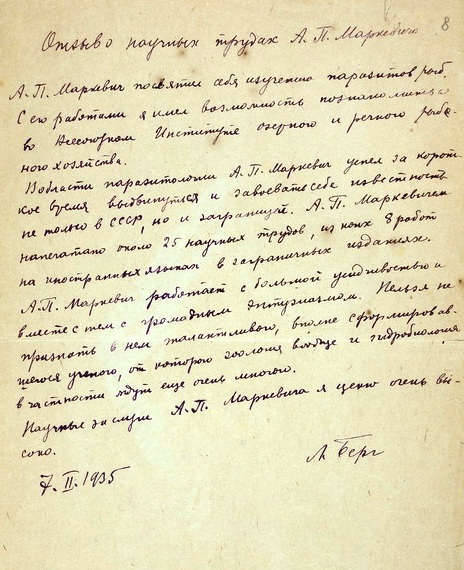 8
Отзыв о научных трудах А. П. Маркевича
А. П. Маркевич посвятил себя изучению паразитов рыб.
С его работами я имел возможность познакомиться
во Всесоюзном Институте озерного и речного рыб-
ного хозяйства.
В области паразитологии А. П. Маркевич успел за корот-
кое время выдвинуться и завоевать себе известность
не только в СССР, но и заграницей. А. П. Маркевичем
напечатано около 25 научных трудов, из коих 8 работ
на иностранных языках в заграничных изданиях.
А. П. Маркевич работает с большой усидчивостью и
вместе с тем с громадным энтузиазмом. Нельзя не
признать в нем талантливого, вполне сформировав-
шегося ученого, от которого зоология вообще и гидробиология
в частности ждут еще очень многого.
Научные заслуги А. П. Маркевича я ценю очень вы-
соко.
Л. Берг
7. II. 1935